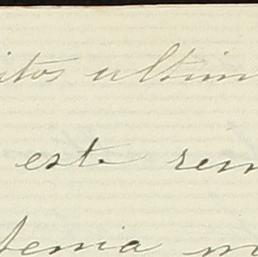 itos ultim
este rem
tenia m